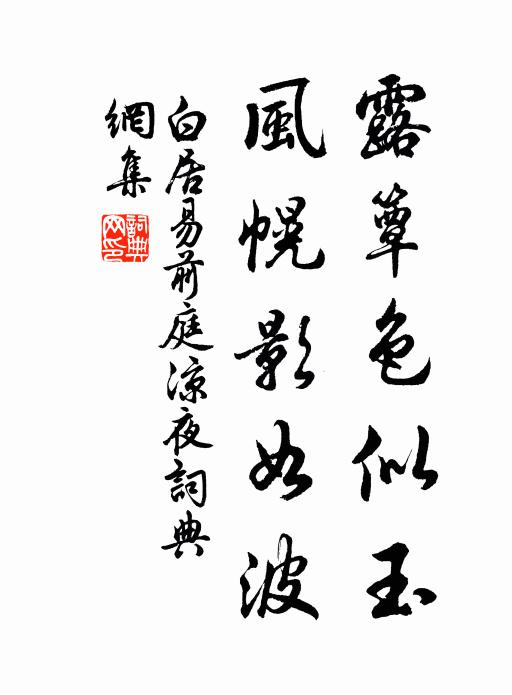 露簟色似玉
風幌影如波
白居易前庭涼夜詞典
網集
詞典
網印